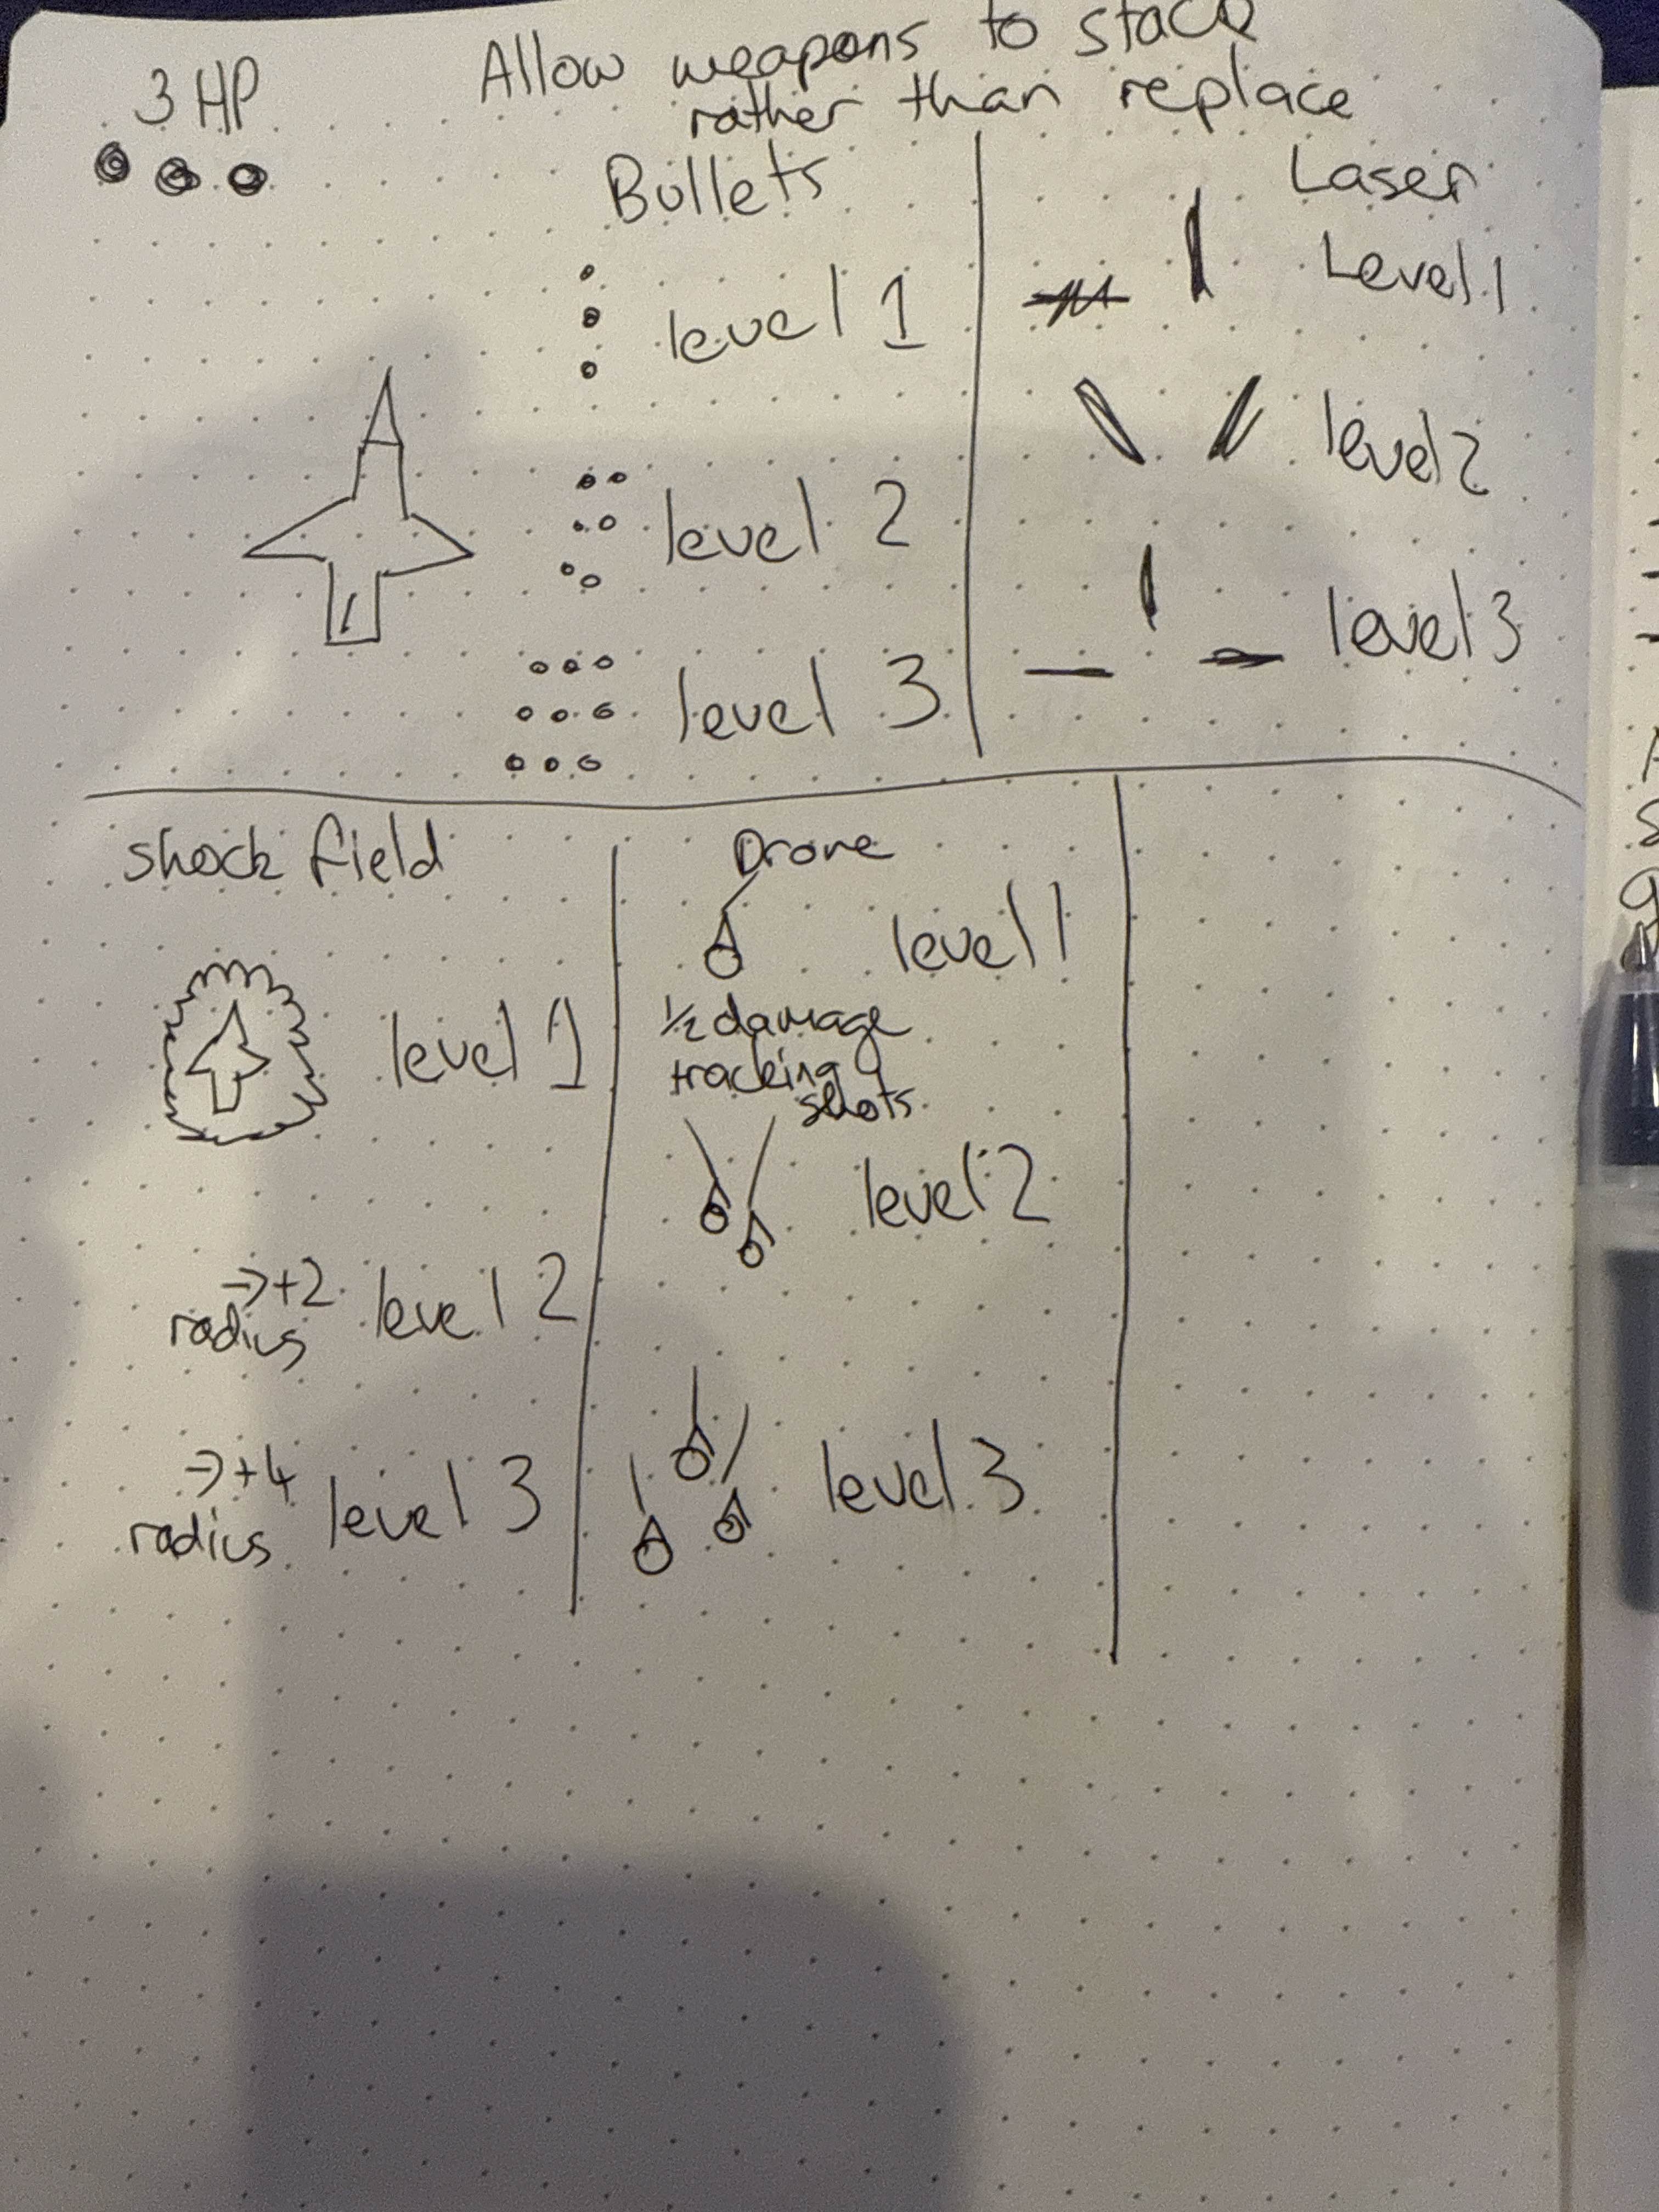 3 HP
Allow weapons to stack
rather than replace
Bullets
level 1
level 2
level 3
Laser
Level 1
level 2
level 3
shock field
level 1
→+2
radius level 2
→+4
radius level 3
Drone
level 1
1/2 damage
tracking
shots
level 2
level 3